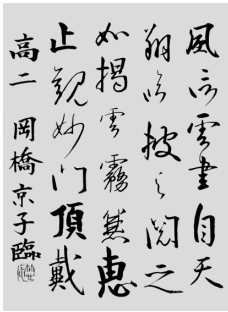 風信雲書自天
翔臨披之閲之
如掲雲霧兼恵
止観妙門頂戴
高二 岡橋京子臨